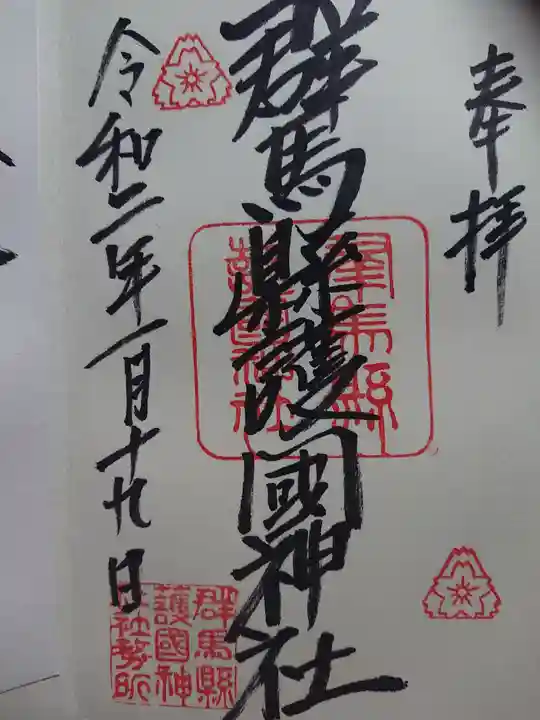 奉拝
群馬縣護國神社
群馬縣
護國神社
令和二年一月十九日
群馬縣
護國神
社社務所